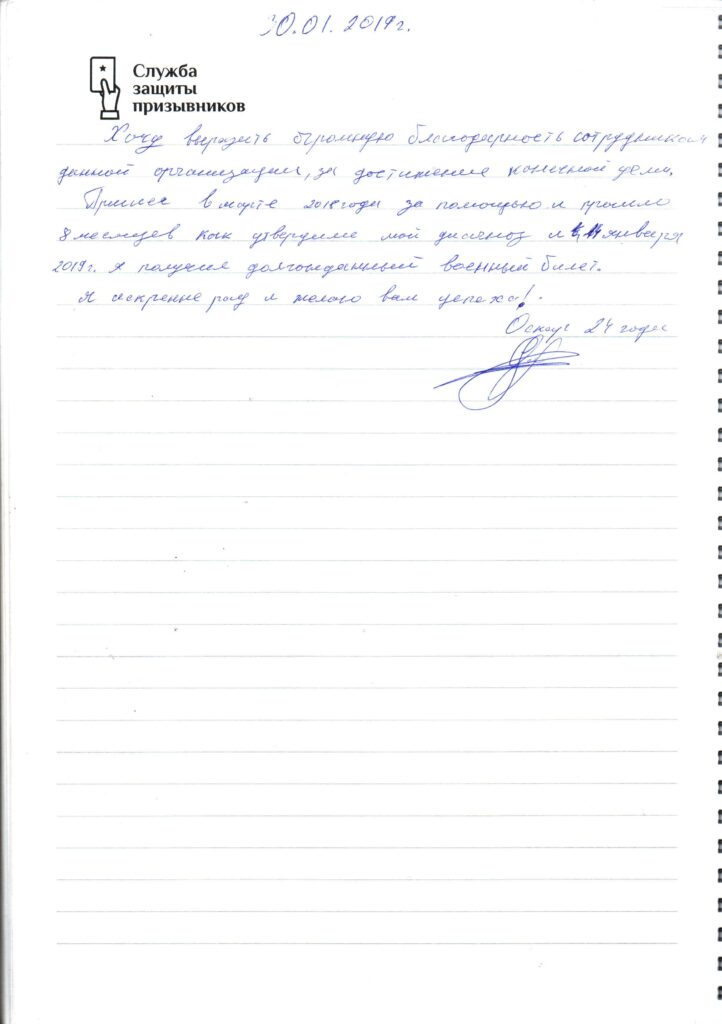 30.01.2019г.
Служба
защиты
призывников
Хочу выразить огромную благодарность сотрудникам
данной организации, за достижение конечной цели.
Пришел в марте 2018 года за помощью и прошло
8 месяцев как утвердили мой диагноз и января
2019г. я получил долгожданный военный билет.
Я искренне рад и желаю вам успеха!
Оскар 24 года